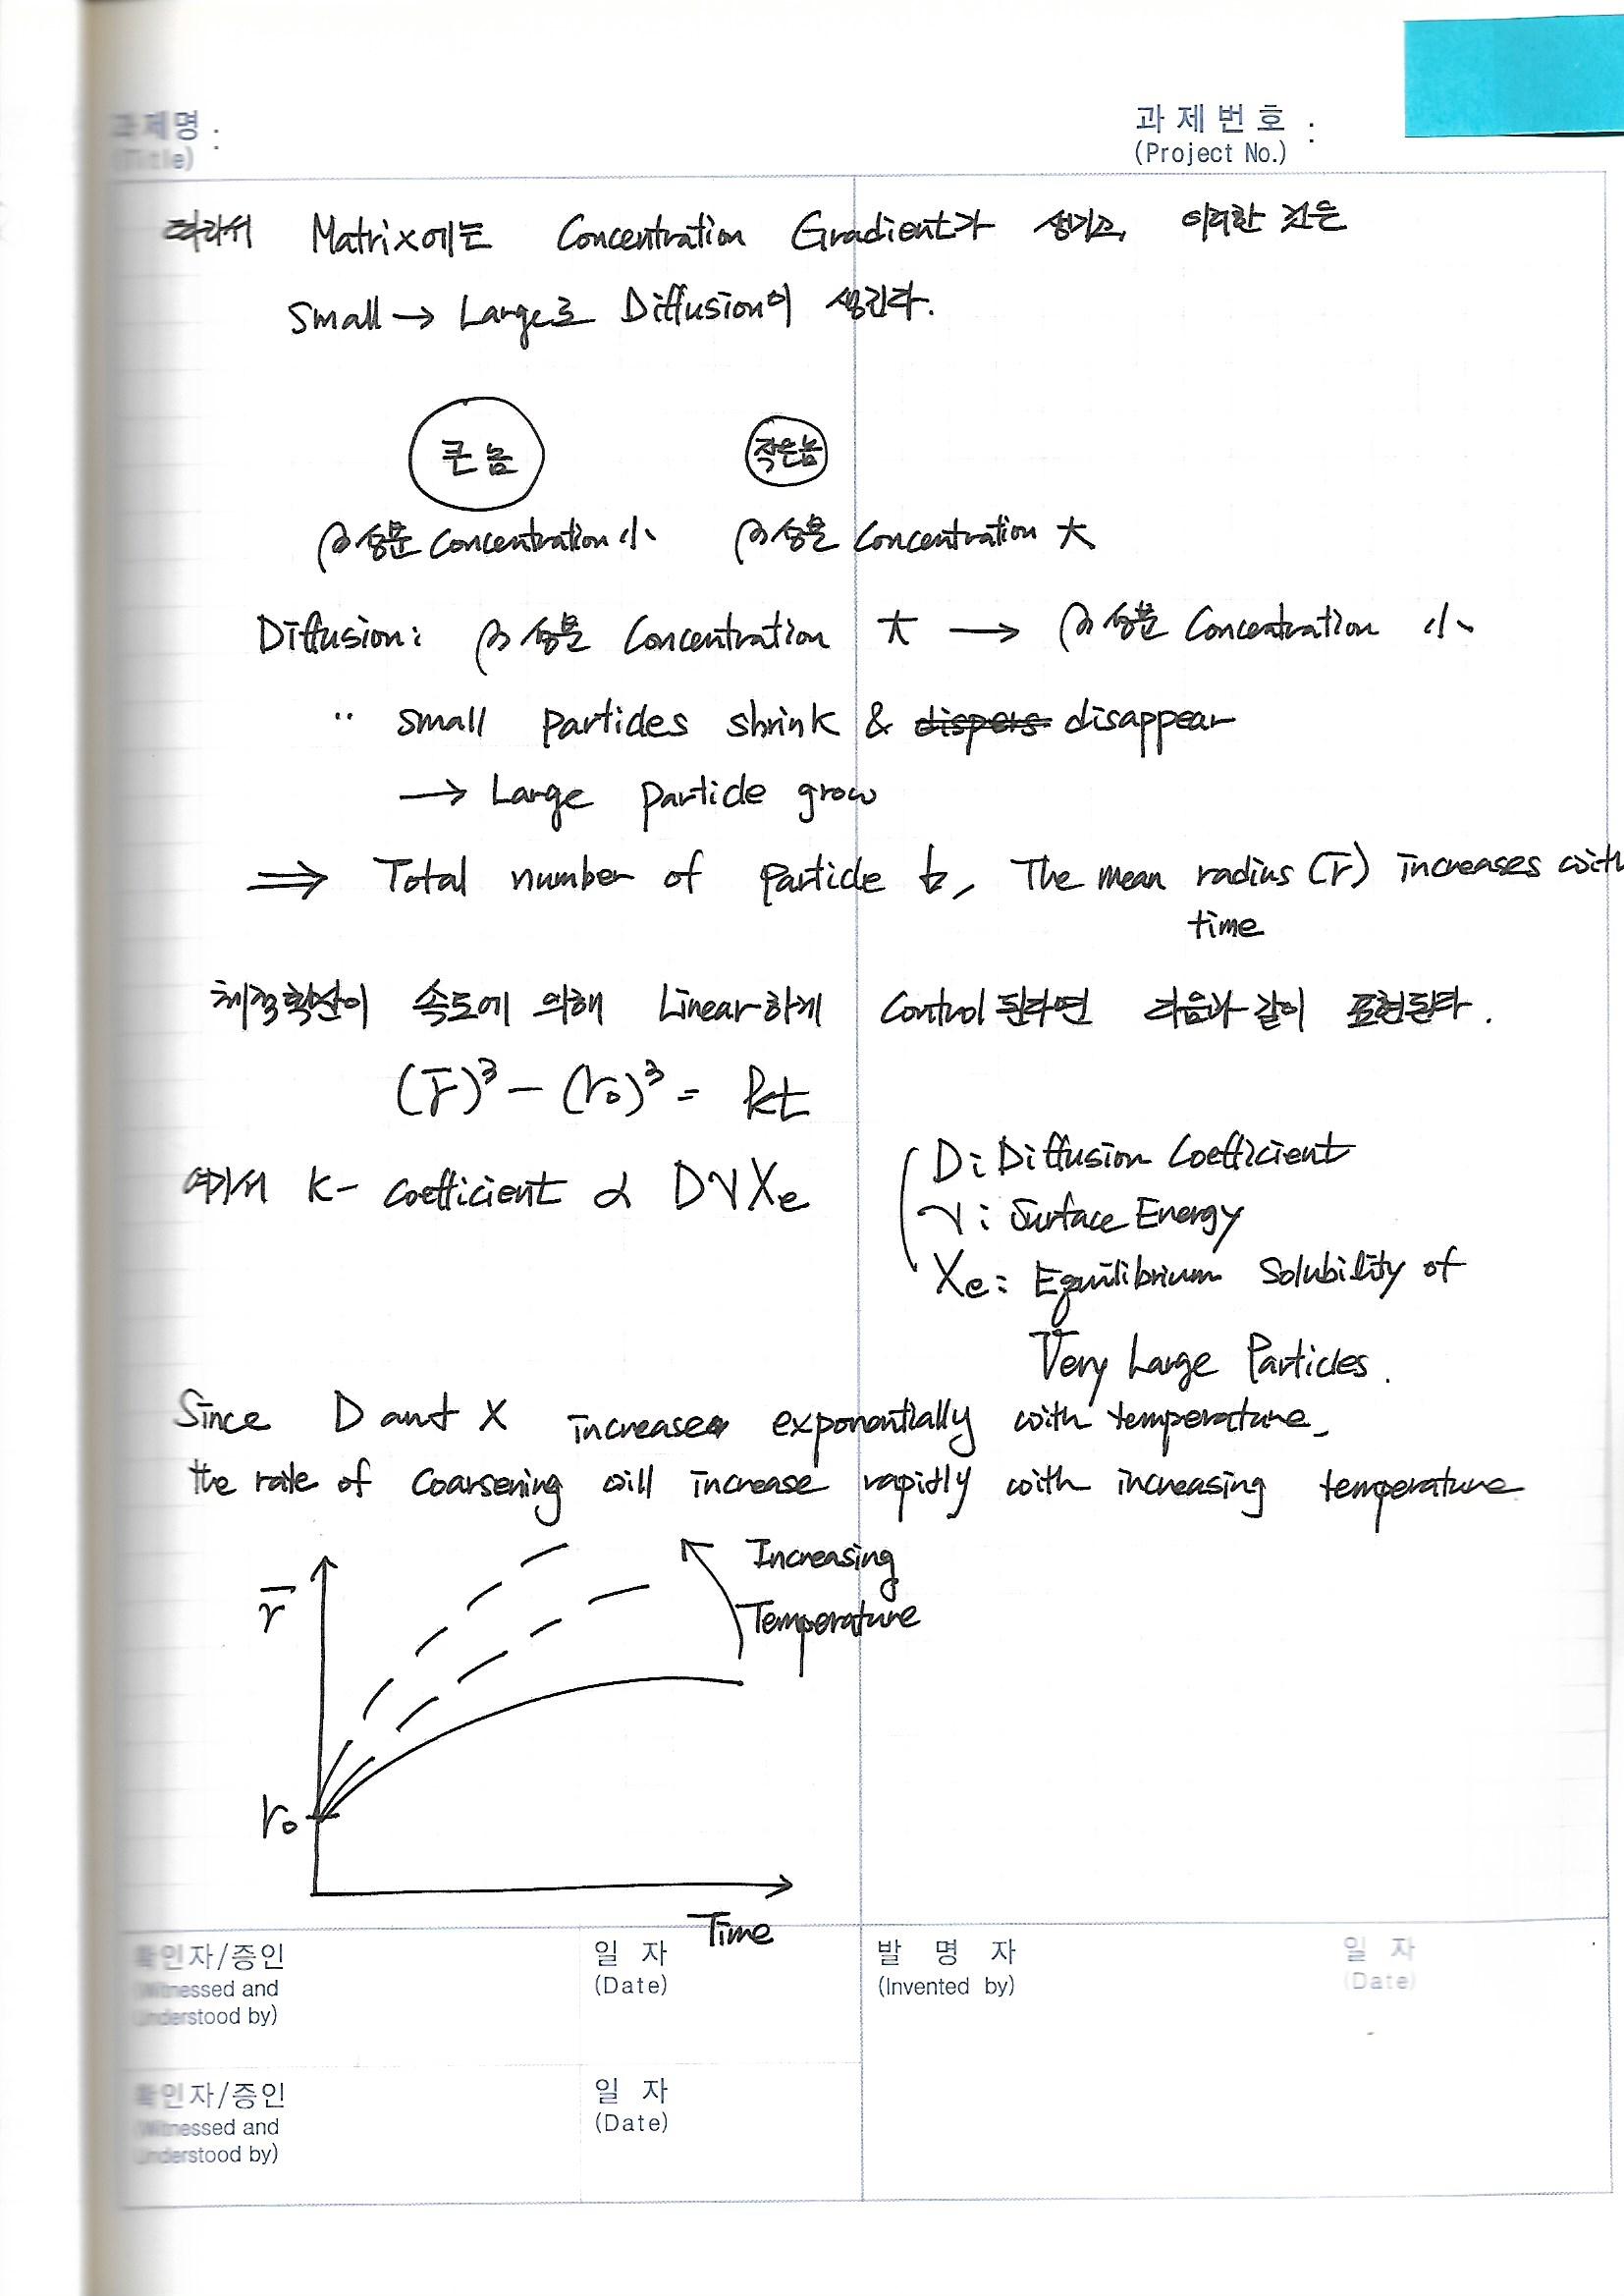 과제명 :
(Title)
과제번호 :
(Project No.)
따라서 Matrix에는 Concentration Gradient가 생기고, 이러한 것은
Small → Large로 Diffusion이 생긴다.
큰놈 작은놈
β성분 Concentration 小 β성분 Concentration 大
Diffusion: β성분 Concentration 大 → β성분 Concentration 小
∵ small particles shrink & dispers disappear
→ Large particle grow
⇒ Total number of particle ↓, The mean radius (r̄) increases with
time
체적확산이 속도에 의해 Linear하게 Control된다면 다음과 같이 표현된다.
(r̄)³ - (r₀)³ = kt
여기서 K- coefficient ∝ DγXe
D: Diffusion Coefficient
γ: Surface Energy
Xe: Equilibrium Solubility of
Very Large Particles.
Since D and X increase exponentially with temperature,
the rate of coarsening will increase rapidly with increasing temperature
r̄
Increasing
Temperature
r₀
Time
확인자/증인
(Witnessed and
Understood by)
일 자
(Date)
발 명 자
(Invented by)
일 자
(Date)
확인자/증인
(Witnessed and
Understood by)
일 자
(Date)